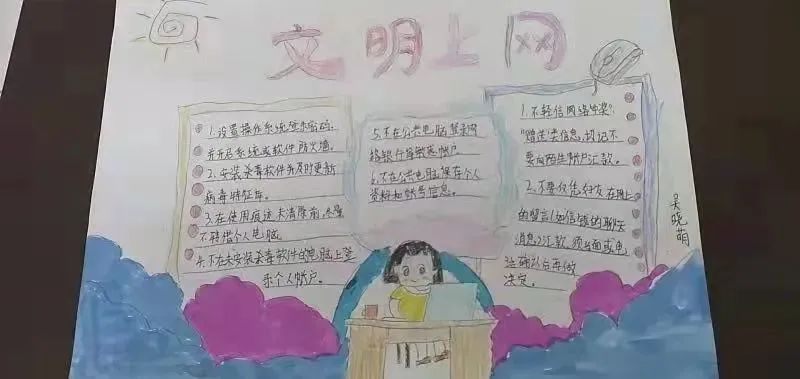 文明上网
1.设置操作系统登录密码,
并开启系统或软件防火墙。
2.安装杀毒软件并及时更新
病毒特征库。
3.在使用痕迹未清除前,尽量
不转借个人电脑。
4.不在未安装杀毒软件的电脑上登
录个人帐户。
5.不在公共电脑登录网
络银行等敏感帐户
6.不在公共电脑保存个人
资料和帐号信息。
1.不轻信网络中奖?
"赠送类信息,切记不
要向陌生帐户汇款。
2.不要仅凭好友在网上
的留言(如信的聊天
消息)汇款,须当面或电
话确认后再做
决定。
吴晓萌